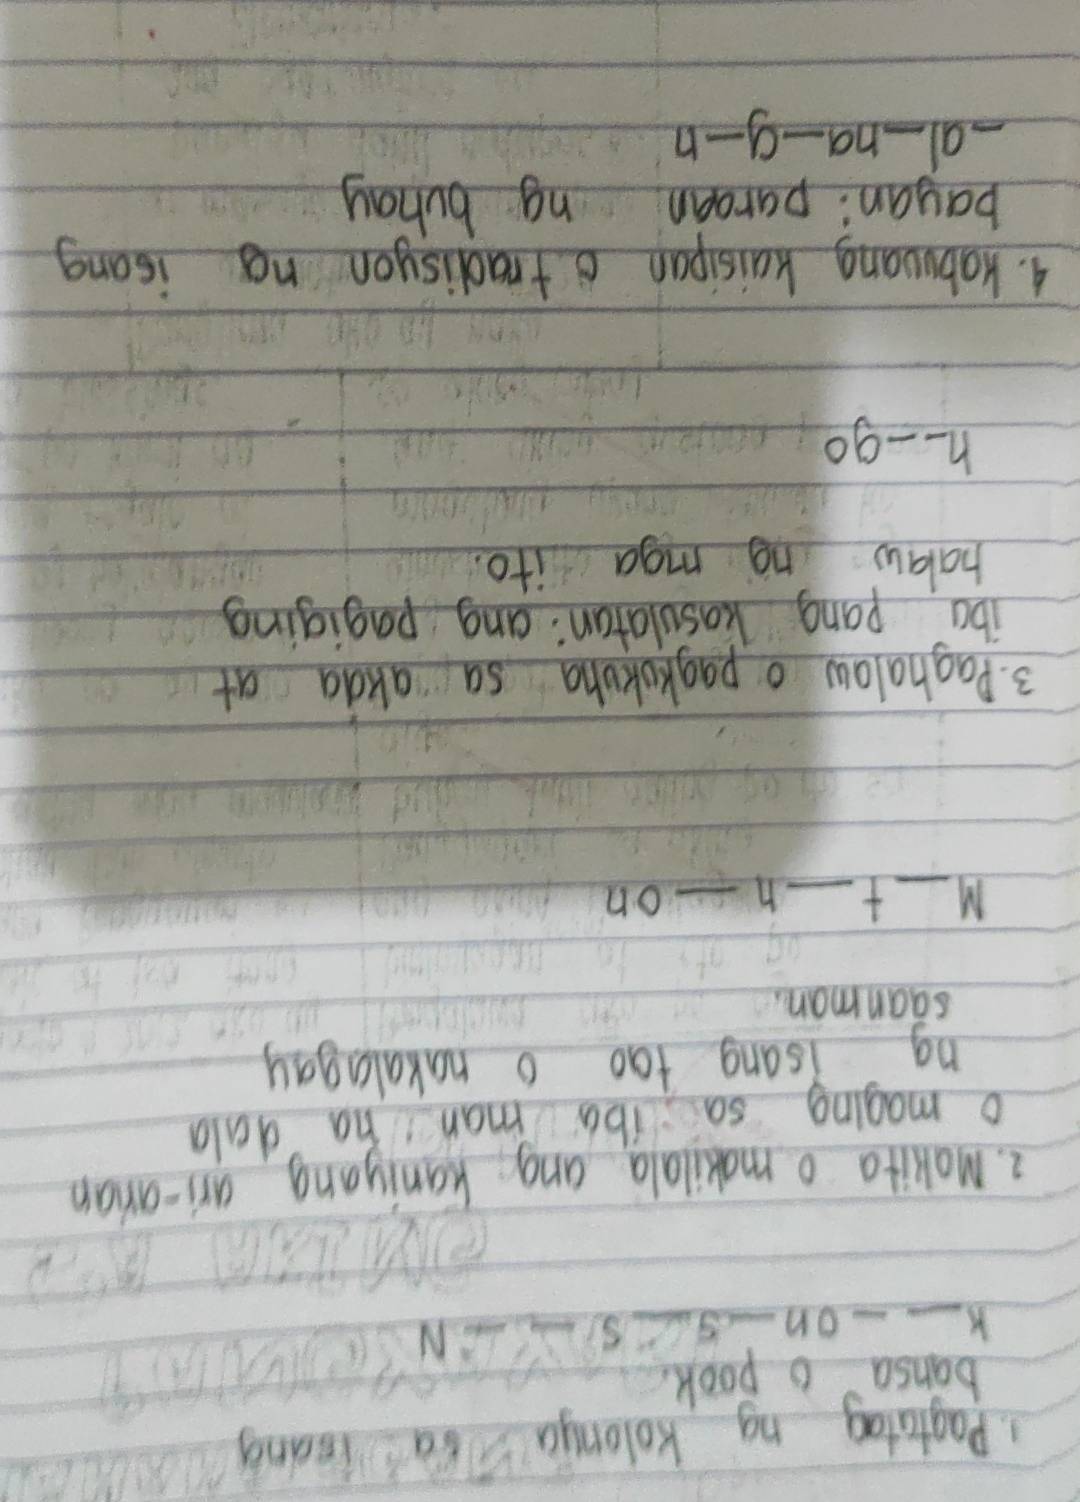 1. Pagtatag ng kolonya sa isang
bansa o pook.
K _ _ on _ s _ s _ _ N
2. Makita o makilala ang kaniyang ari-arian
o maging sa iba man na dala
ng isang tao o nakalagay
saanman.
M _ t _ h _ on
3. Paghalaw o pagkukuha sa akda at
iba pang kasulatan: ang pagiging
halaw ng mga ito.
h _ _ go
4. Kabuuang kaisipan o tradisyon ng isang
bayan: paraan ng buhay
_ al _ na _ g _ n